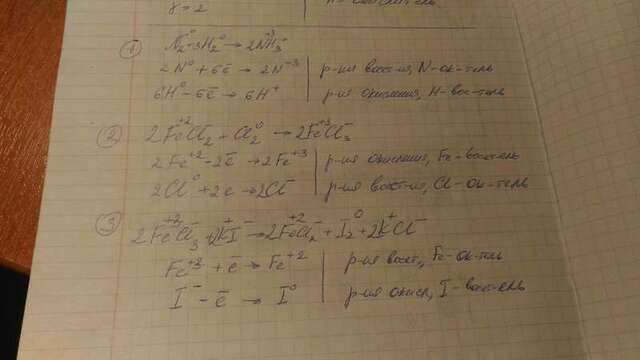 γ = 2
① N₂⁰ + 3H₂⁰ → 2NH₃⁻
2N⁰ + 6ē → 2N⁻³ | р-ия восст-ия, N-ок-тель
6H⁰ - 6ē → 6H⁺ | р-ия окисления, H-вос-тель
② 2Fe⁺²Cl₂⁻ + Cl₂⁰ → 2Fe⁺³Cl₃⁻
2Fe⁺² - 2ē → 2Fe⁺³ | р-ия окисления, Fe-восст-ель
2Cl⁰ + 2e → 2Cl⁻ | р-ия восст-ия, Cl-ок-тель
③ 2Fe⁺²Cl₃⁻ + 2K⁺I⁻ → 2Fe⁺²Cl₂⁻ + I₂⁰ + 2K⁺Cl⁻
Fe⁺³ + ē → Fe⁺² | р-ия восст, Fe-ок-тель
I⁻ - ē → I⁰ | р-ия окисл, I-восст-ель